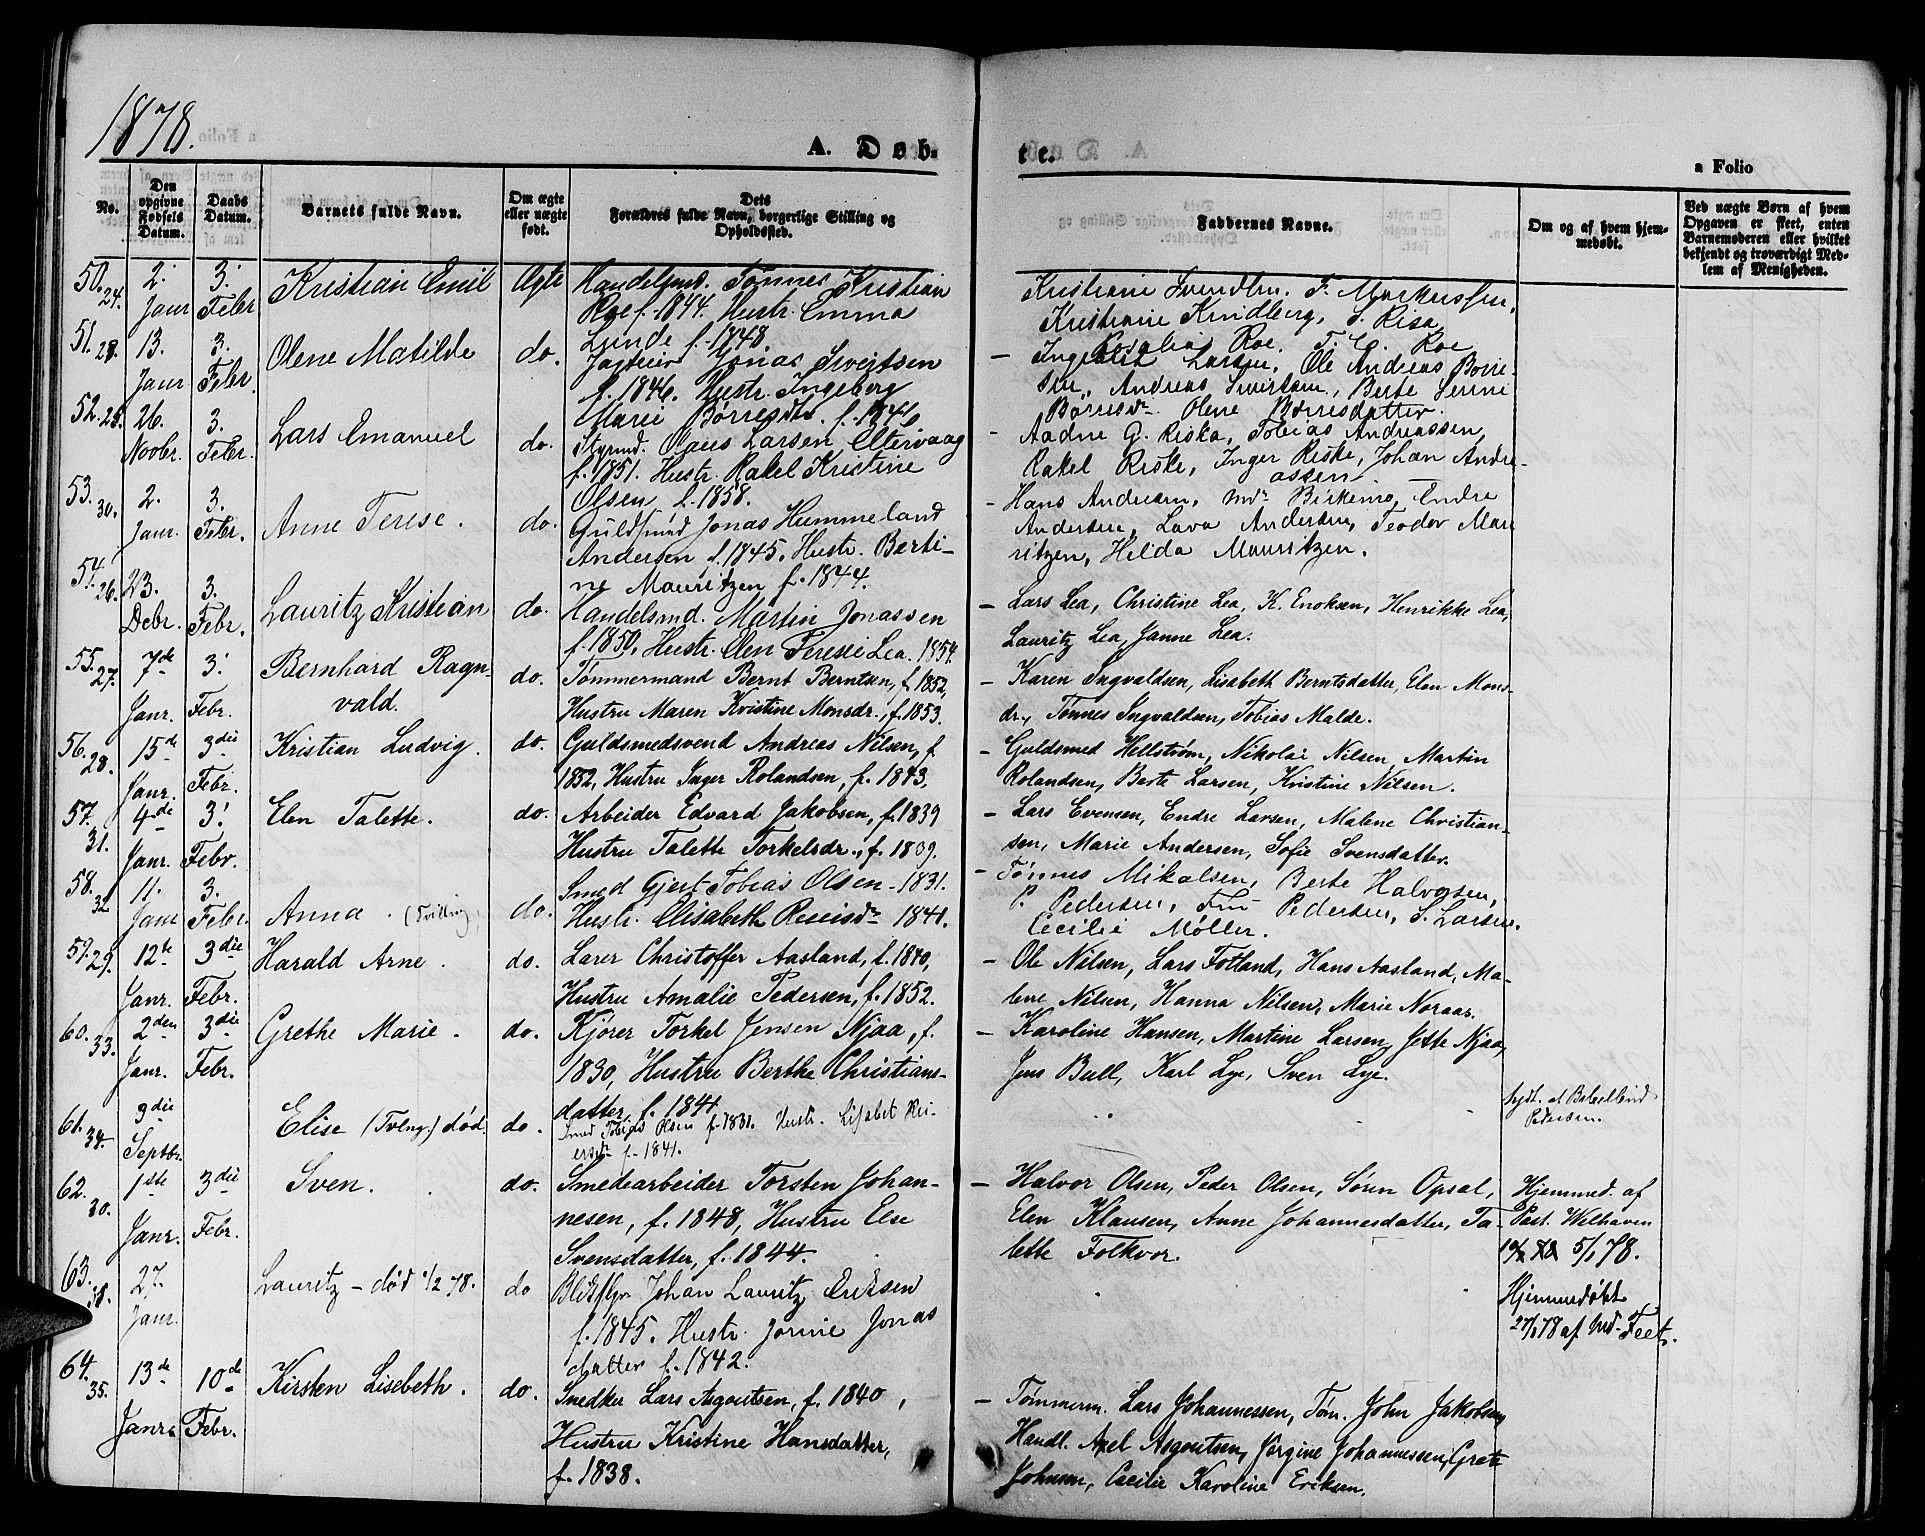 1878.
A. Døb-
te.
a Folio
No.
Den opgivne Fødsels Datum.
Daabs Datum.
Barnets fulde Navn.
Om ægte eller uægte født.
Dets Forældres fulde Navn, borgerlige Stilling og Opholdssted.
Faddernes Navne.
Om og af hvem hjemmedøbt.
Ved uægte Børn af hvem Opgaven er skeet, enten Barnemoderen eller hvilket bekjendt og troværdigt Medlem af Menigheden.
50. 24. 2. Janr 3. Febr Kristian Emil Ægte
Handelsmd. Tønnes Kristian
Roe f. 1844. Hustr. Emma
Lunde f. 1848.
Kristiane Svendsen. T. Markussen,
Kristiane Kindberg, S. Risa
Rosalie Roe. T. C. Roe
51. 28. 13. Janr 3. Febr. Olene Matilde do.
Jagteier Jonas Sveitsen
f. 1846. Hustr. Ingeborg
Marie Børresdtr. f. 1846
– Ingeborg Larsen, Ole Andreas Børre-
sen, Andreas Sveitsen, Berte Serine
Børresdr. Olene Børresdatter.
52. 25. 26. Novbr. 3. Febr. Lars Emanuel do.
Styrmd. Olaus Larsen Eltervaag
f. 1851. Hustr. Rakel Kristine
Olsen f. 1858.
– Aadne G. Riska, Tobias Andreassen,
Rakel Riske, Inger Riske, Johan Andre-
assen
53. 30. 2. Janr. 3. Febr. Anne Terese. do.
Guldsmed Jonas Hummeland
Andersen f. 1845. Hustr. Berti-
ne Mauritzen f. 1844.
– Hans Andersen, Mdr. Birkemo, Endre
Andersen, Lava Andersen, Teodor Mau
ritzen, Hilda Mauritzen.
54. 26. 23. Debr. 3. Febr. Lauritz Kristian do.
Handelsmd. Martin Jonassen
f. 1850. Hustr. Elen Teresie Lea. 1854.
– Lars Lea, Christine Lea, K. Enoksen, Henrikke Lea,
Lauritz Lea, Janne Lea.
55. 27. 7de Janr. 3. Febr. Bernhard Ragn-
vald. do.
Tømmermand Bernt Berntsen, f. 1852,
Hustru Maren Kristine Monsdr., f. 1853.
– Karen Ingvaldsen, Lisabeth Berntsdatter, Elen Mons-
dr., Tønnes Ingvaldsen, Tobias Malde.
56. 28. 15de Janr. 3die Febr. Kristian Ludvig. do.
Guldsmedsvend Andreas Nilsen, f.
1852, Hustru Inger Rolandsen, f. 1843.
– Guldsmed Hellstrøm, Nikolai Nilsen, Martin
Rolandsen, Berte Larsen, Kristine Nilsen.
57. 31. 4di Janr. 3. Febr. Elen Talette. do.
Arbeider Edvard Jakobsen, f. 1839
Hustru Talette Torkelsdr., f. 1839.
– Lars Evensen, Endre Larsen, Malene Christian-
sen, Marie Andersen, Sofie Svensdatter.
58. 32 11. Janr 3. Febr Anna. (Tvilling) do.
Smed Gjert Tobias Olsen – 1831.
Hustr. Elisabeth Reiersdr 1841.
– Tønnes Mikalsen, Berte Halvorsen,
P. Pedersen, Fru Pedersen, S. Larsen.
Cecilie Møller.
59. 29. 12te Janr. 3die Febr. Harald Arne. do.
Lærer Christoffer Aasland, f. 1840,
Hustru Amalie Pedersen, f. 1852.
– Ole Nilsen, Lars Fotland, Hans Aasland, Ma-
lene Nilsen, Hanna Nilsen, Marie Noraas.
60. 33. 2den Janr. 3die Febr. Grethe Marie. do.
Kjører Torkel Jensen Njaa, f.
1830, Hustru Berthe Christians-
datter, f. 1841
– Karoline Hansen, Martine Larsen, Jette Njaa,
Jens Bull, Karl Lye, Sven Lye.
61. 34. 9die Septbr. Elise (Tvlng.) død. do.
Smed Tobias Olsen f. 1831. Hustr. Lisabet Rei-
ersdr. f. 1841.
Pedersen.
62. 30. 1ste Janr. 3die Febr. Sven. do.
Smedearbeider Torsten Johan-
nesen, f. 1848, Hustru Else
Svensdatter, f. 1844.
– Halvor Olsen, Peder Olsen, Søren Opsal,
Elen Klausen, Anne Johannesdatter, Ta-
lette Folkvor.
Hjemmed. af
Past. Welhaven
5/1 78.
63. 38. 27. Janr. Lauritz – død 1/2 78. do
Johan Lauritz Eriksen
f. 1845. Hustr. Jonas
datter f. 1842.
Hjemmedøbt
27/1 78 af Md. Feet.
64. 35. 13de Janr. 10de Febr. Kirsten Lisebeth. do.
Snedker Lars Asgoutsen, f. 1840,
Hustru Kristine Hansdatter,
f. 1838.
– Tømmerm. Lars Johannessen, Tøm. John Jakobsen,
Handl. Axel Asgoutsen, Jørgine Johannessen, Grete
Johnsen, Cecilie Karoline Eriksen.